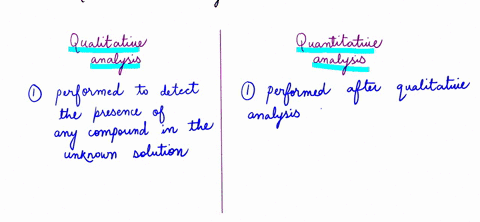 Qualitative
analysis
① performed to detect
the presence of
any compound in the
unknown solution
Quantitative
analysis
① performed after qualitative
analysis